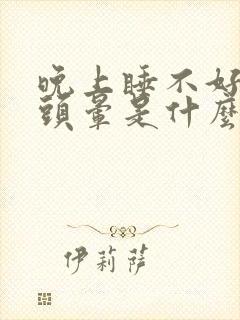 晚上睡不好
頭暈是什麼
伊莉薩